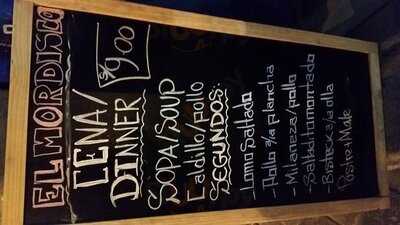 EL MORDISCO
CENA/
DINNER
S/9.00
SOPA/SOUP
Caldillo/pollo
SEGUNDOS:
-Lomo Saltado
-Pollo a/a plancha
-Milaneza/pollo
-Saltado tomontado
-Bisteck a/a olla
Postre + Mate